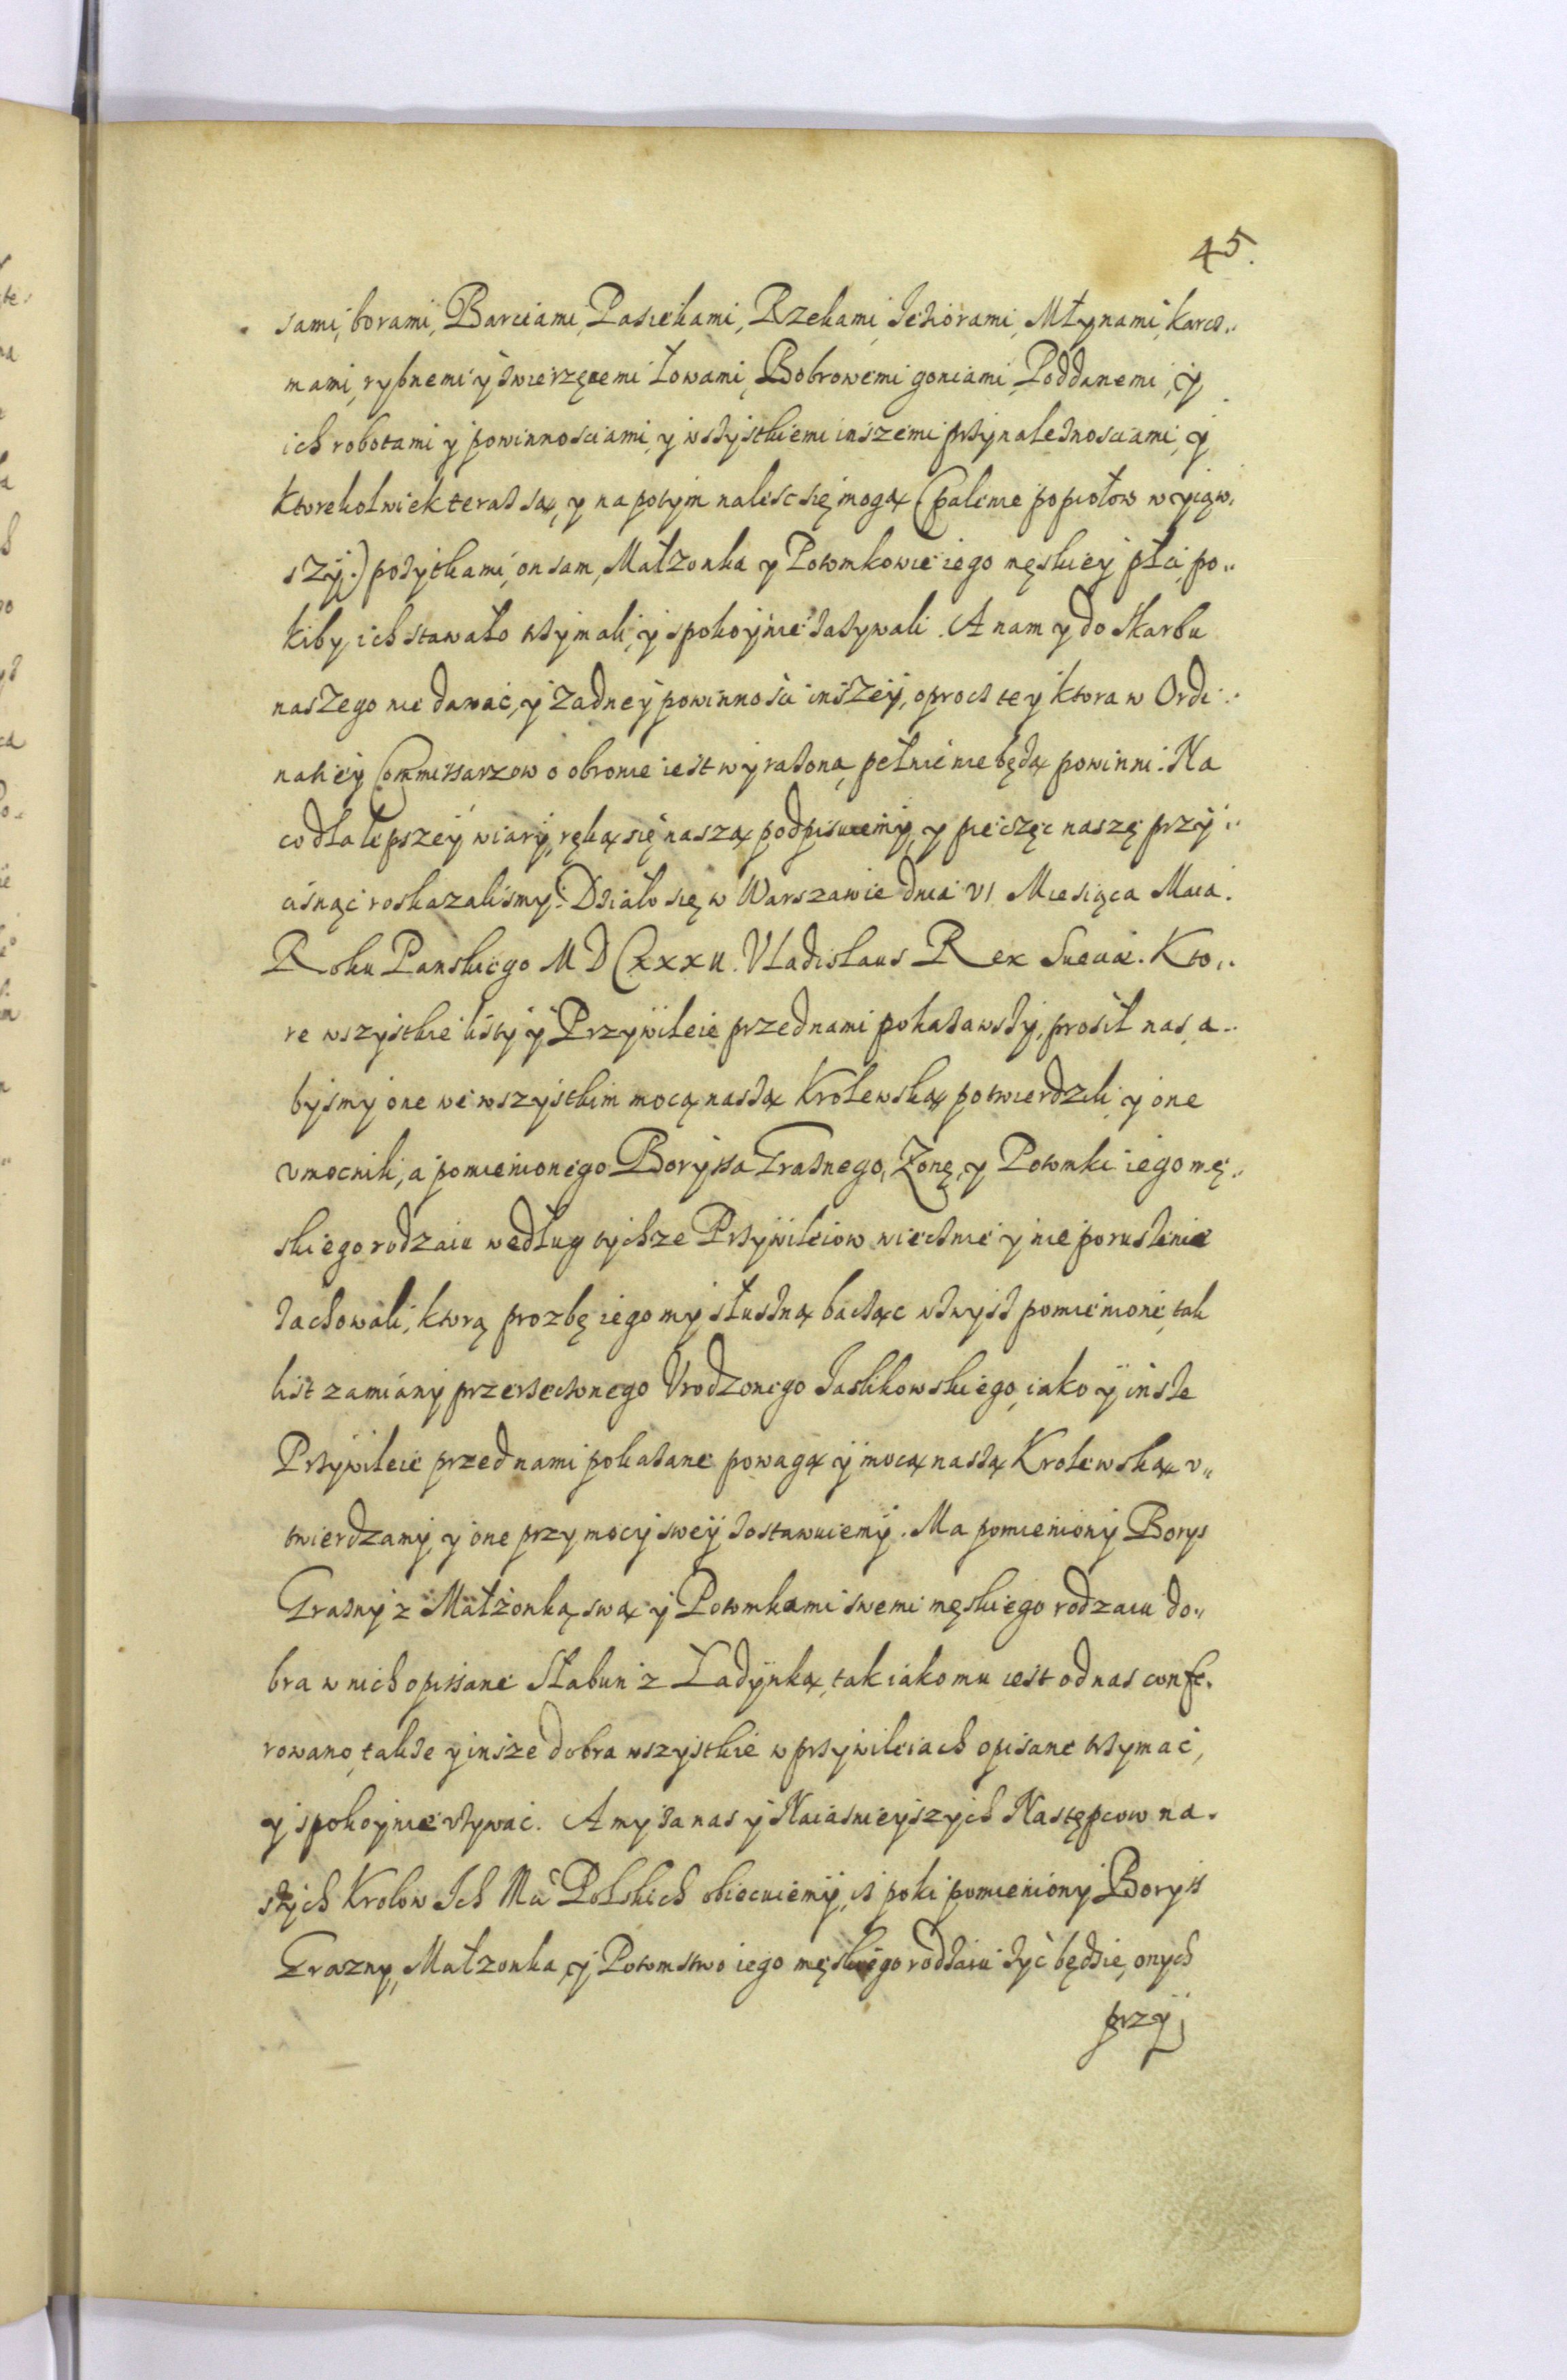 45.
sami, borami, Barciami, Pasiekami, Rzekami, Jeziorami, Młynami, karcz„
mami, rybnemi y zwierzęcemi łowami, Bobrowemi goniami, Poddanemi, y
ich robotami y powinnosciami, y wszystkiemi inszemi przynaleznosciami, y
ktorekolwiek teraz są, y na potym nalesc się mogą (palenie popiołow wyiąw„
szy.) pozytkami, on sam, Małzonka y Potomkowie iego męskiey płci, po„
kiby ich stawało trzymali, y spokoynie zazywali. A nam y do Skarbu
naszego nie dawać, y zadney powinnosci inszey, oprocz tey ktora w Ordi„
natiey Commissarzow o obronie iest wyrazona, pełnić nie będą powinni. Na
co dla lepszey wiary, ręką się naszą podpisuiemy, y pieczęc naszę przy„
cisnąć roskazalismy. Działo się w Warszawie dnia VI Miesiąca Maia.
Roku Panskiego MDCXXXII. Vladislaus Rex Sueciæ. Kto„
re wszystkie listy y Przywileie przed nami pokazawszy, prosił nas, a„
bysmy one we wszystkim mocą naszą Krolewską potwierdzili, y one
vmocnili, a pomienionego Boryssa Graznego, Zonę, y Potomki iego mę„
skiego rodzaiu według tychze Przywileiow wiecznie y nie poruszenie
zachowali, ktorą prozbę iego my słuszną bacząc zwysz pomienione, tak
list zamiany przerzeczonego Vrodzonego Jaslikowskiego, iako y insze
Przywileie przed nami pokazane powagą y mocą naszą Krolewską v„
twierdzamy, y one przy mocy swey zostawuiemy. Ma pomieniony Borys
Grazny z Małzonką swą y Potomkami swemi męskiego rodzaiu do„
bra w nich opissane Słabun z Ładynką, tak iako mu iest od nas confe„
rowano, takze y insze dobra wszystkie w przywileiach opisane trzymać,
y spokoynie vzywać. A my za nas y Naiasnieyszych Następcow na„
szych Krolow Ich Mci Polskich obiecuiemy, iz poki pomieniony Boryss
Grazny, Małzonka, y Potomstwo iego męskiego rodzaiu zyć będzie, onych
przy